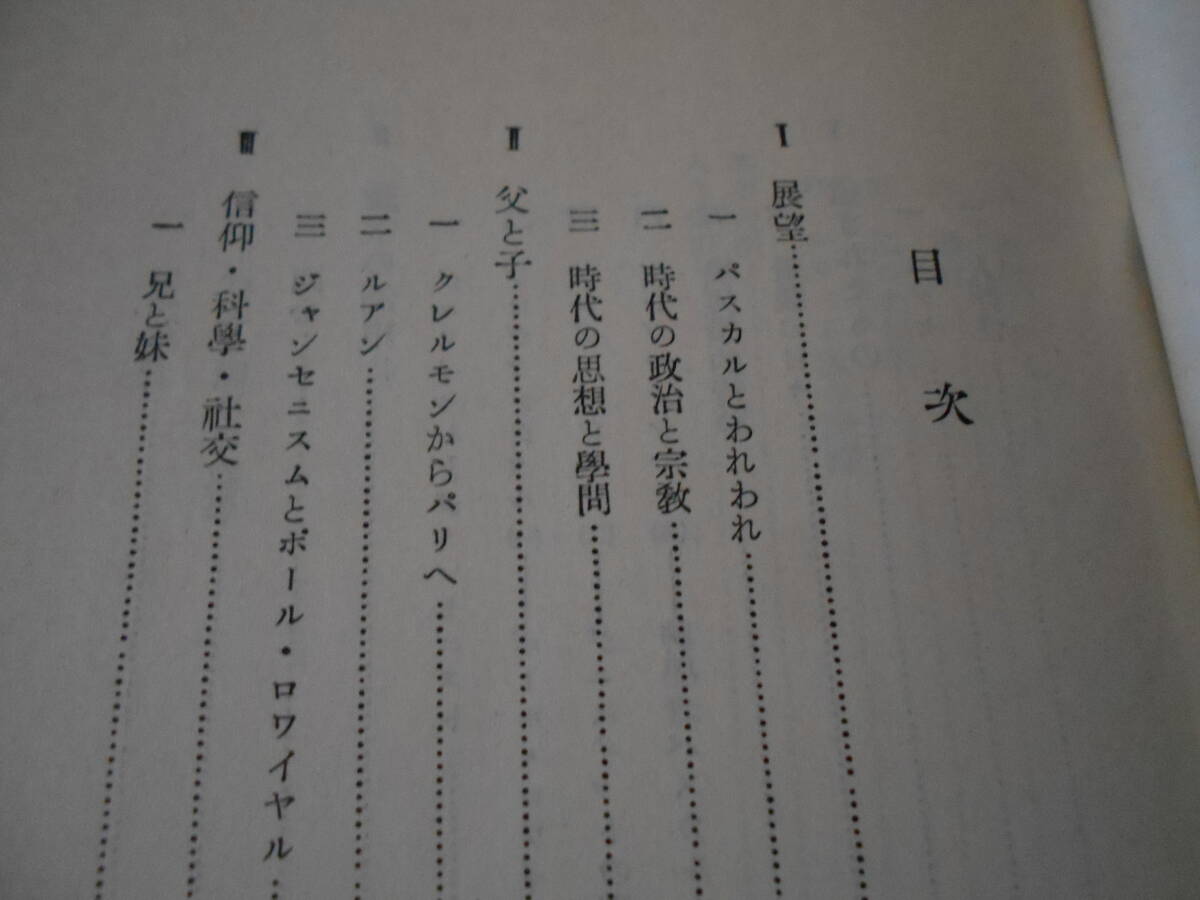 目次
Ⅰ 展望
一 パスカルとわれわれ
二 時代の政治と宗教
三 時代の思想と學問
Ⅱ 父と子
一 クレルモンからパリへ
二 ルアン
三 ジャンセニスムとポール・ロワイヤル
Ⅲ 信仰・科學・社交
一 兄と妹